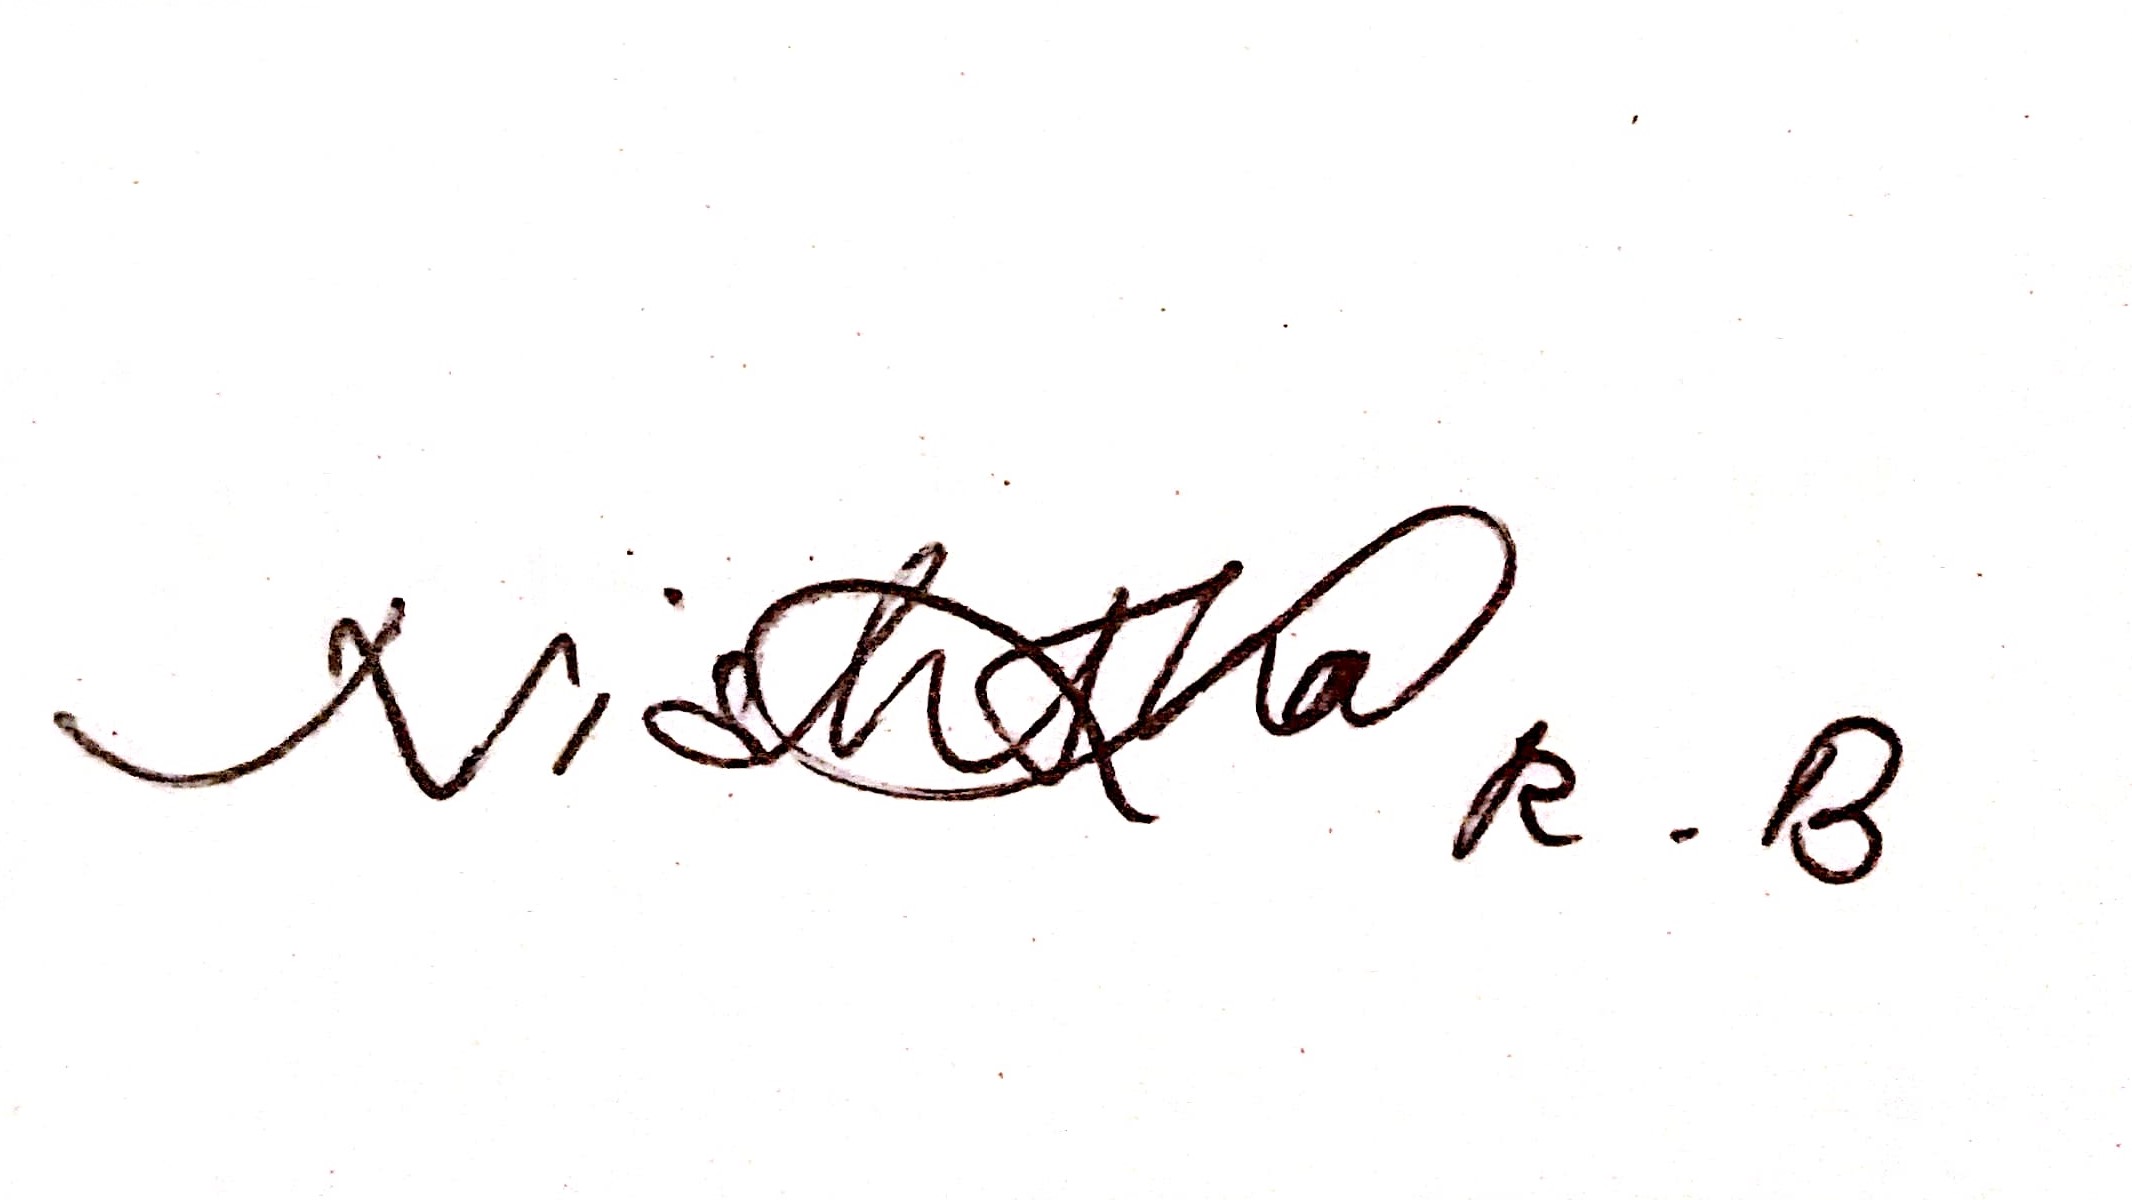 Nishtha R. B